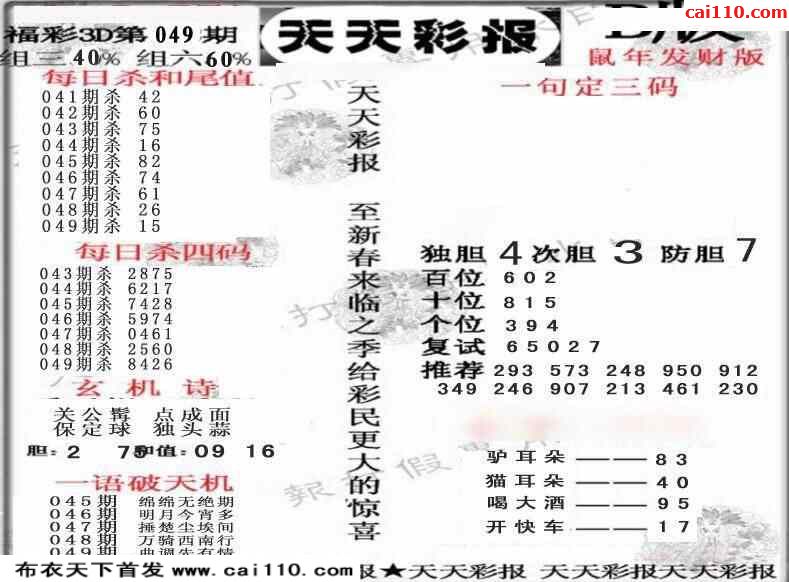 cai110.com
福彩3D第049期
组三40% 组六60%
天天彩报
鼠年发财版
每日杀和尾值
041期杀 42
042期杀 60
043期杀 75
044期杀 16
045期杀 82
046期杀 74
047期杀 61
048期杀 26
049期杀 15
每日杀四码
043期杀 2875
044期杀 6217
045期杀 7428
046期杀 5974
047期杀 0461
048期杀 2560
049期杀 8426
玄机诗
关公髯 点成面
保定球 独头蒜
胆:2 75 和值:09 16
一语破天机
045期 绵绵无绝期
046期 明月今宵多
047期 捶楚尘埃间
048期 万骑西南行
049期 曲调先有情
天天彩报 至新春来临之季给彩民更大的惊喜
一句定三码
独胆 4 次胆 3 防胆 7
百位 602
十位 815
个位 394
复试 65027
推荐 293 573 248 950 912
349 246 907 213 461 230
驴耳朵——83
猫耳朵——40
喝大酒——95
开快车——17
布衣天下首发 www.cai110.com 彩报★天天彩报 天天彩报